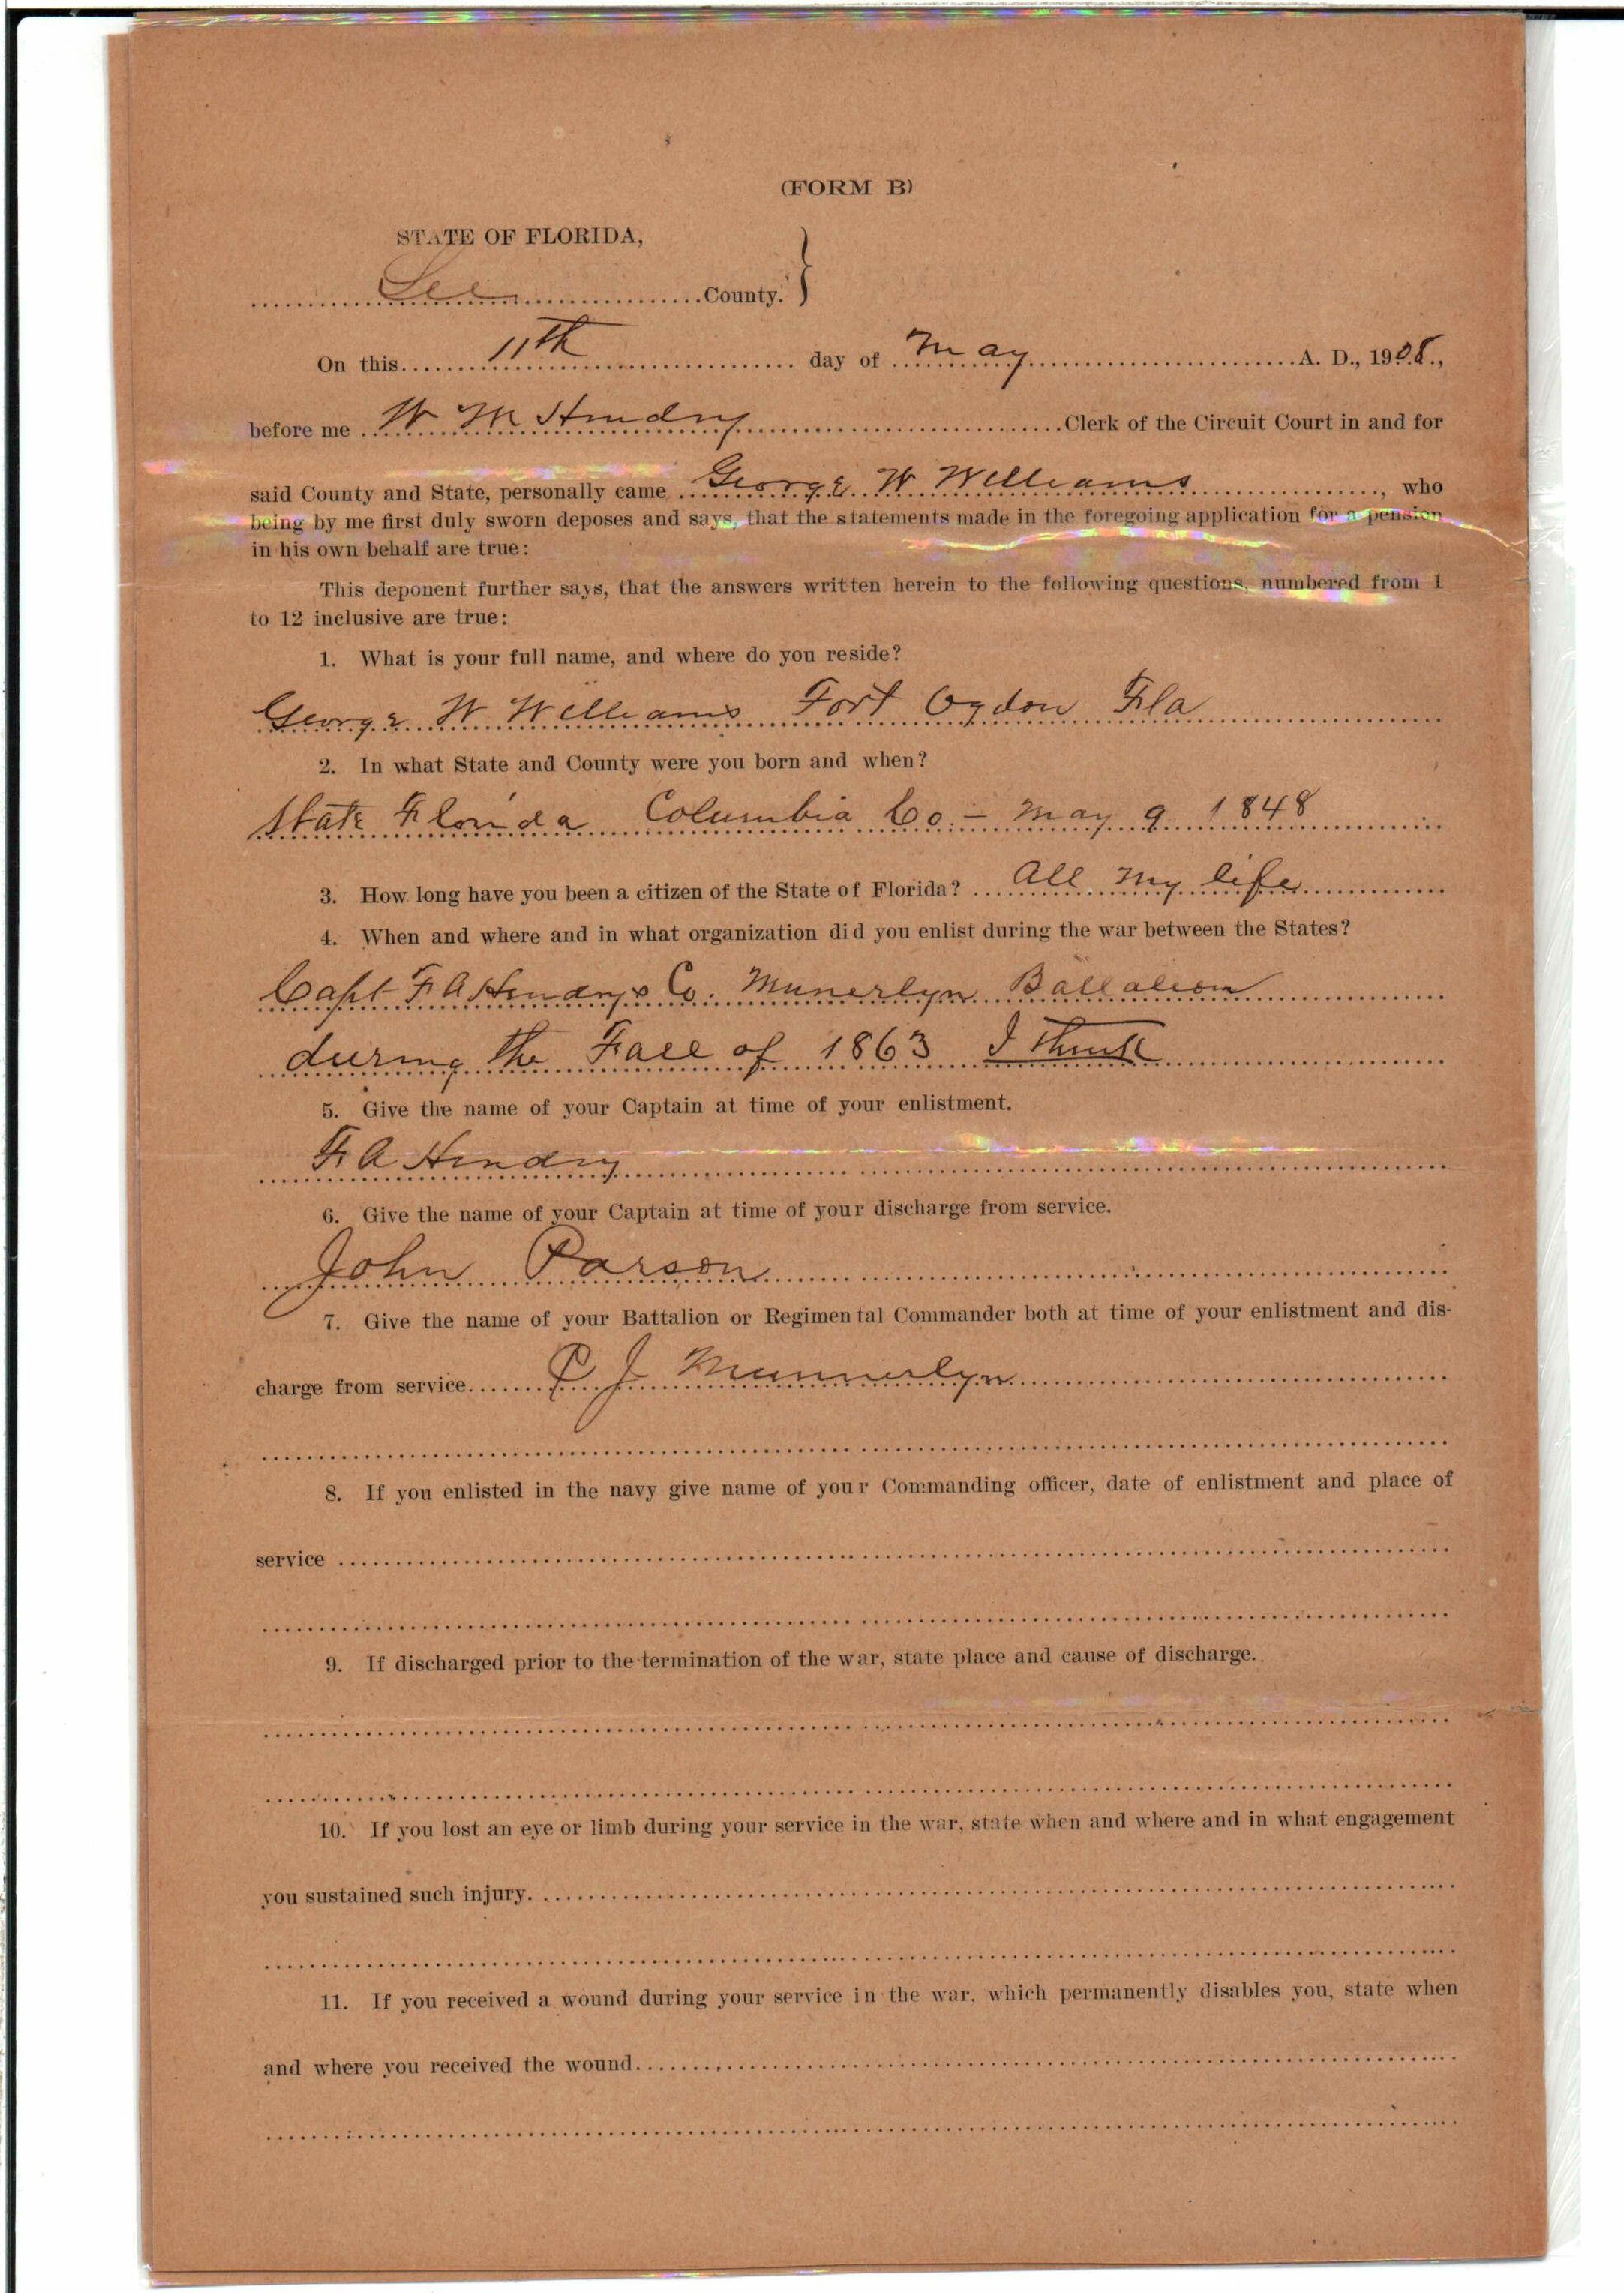 (FORM B)
STATE OF FLORIDA,
Lee County.
On this 11th day of May A. D., 1908.,
before me W M Hendry Clerk of the Circuit Court in and for
said County and State, personally came George W Williams, who
being by me first duly sworn deposes and says, that the statements made in the foregoing application for a pension
in his own behalf are true:
This deponent further says, that the answers written herein to the following questions, numbered from 1
to 12 inclusive are true:
1. What is your full name, and where do you reside?
George W Williams Fort Ogdon Fla
2. In what State and County were you born and when?
State Florida Columbia Co. - May 9 1848
3. How long have you been a citizen of the State of Florida? All my life
4. When and where and in what organization did you enlist during the war between the States?
Capt F A Hendrys Co. Munerlyn Battalion
during the Fall of 1863 I think
5. Give the name of your Captain at time of your enlistment.
F. A Hendry
6. Give the name of your Captain at time of your discharge from service.
John Parson
7. Give the name of your Battalion or Regimental Commander both at time of your enlistment and dis-
charge from service. J Munnerlyn
8. If you enlisted in the navy give name of your Commanding officer, date of enlistment and place of
service
9. If discharged prior to the termination of the war, state place and cause of discharge.
10. If you lost an eye or limb during your service in the war, state when and where and in what engagement
you sustained such injury.
11. If you received a wound during your service in the war, which permanently disables you, state when
and where you received the wound.